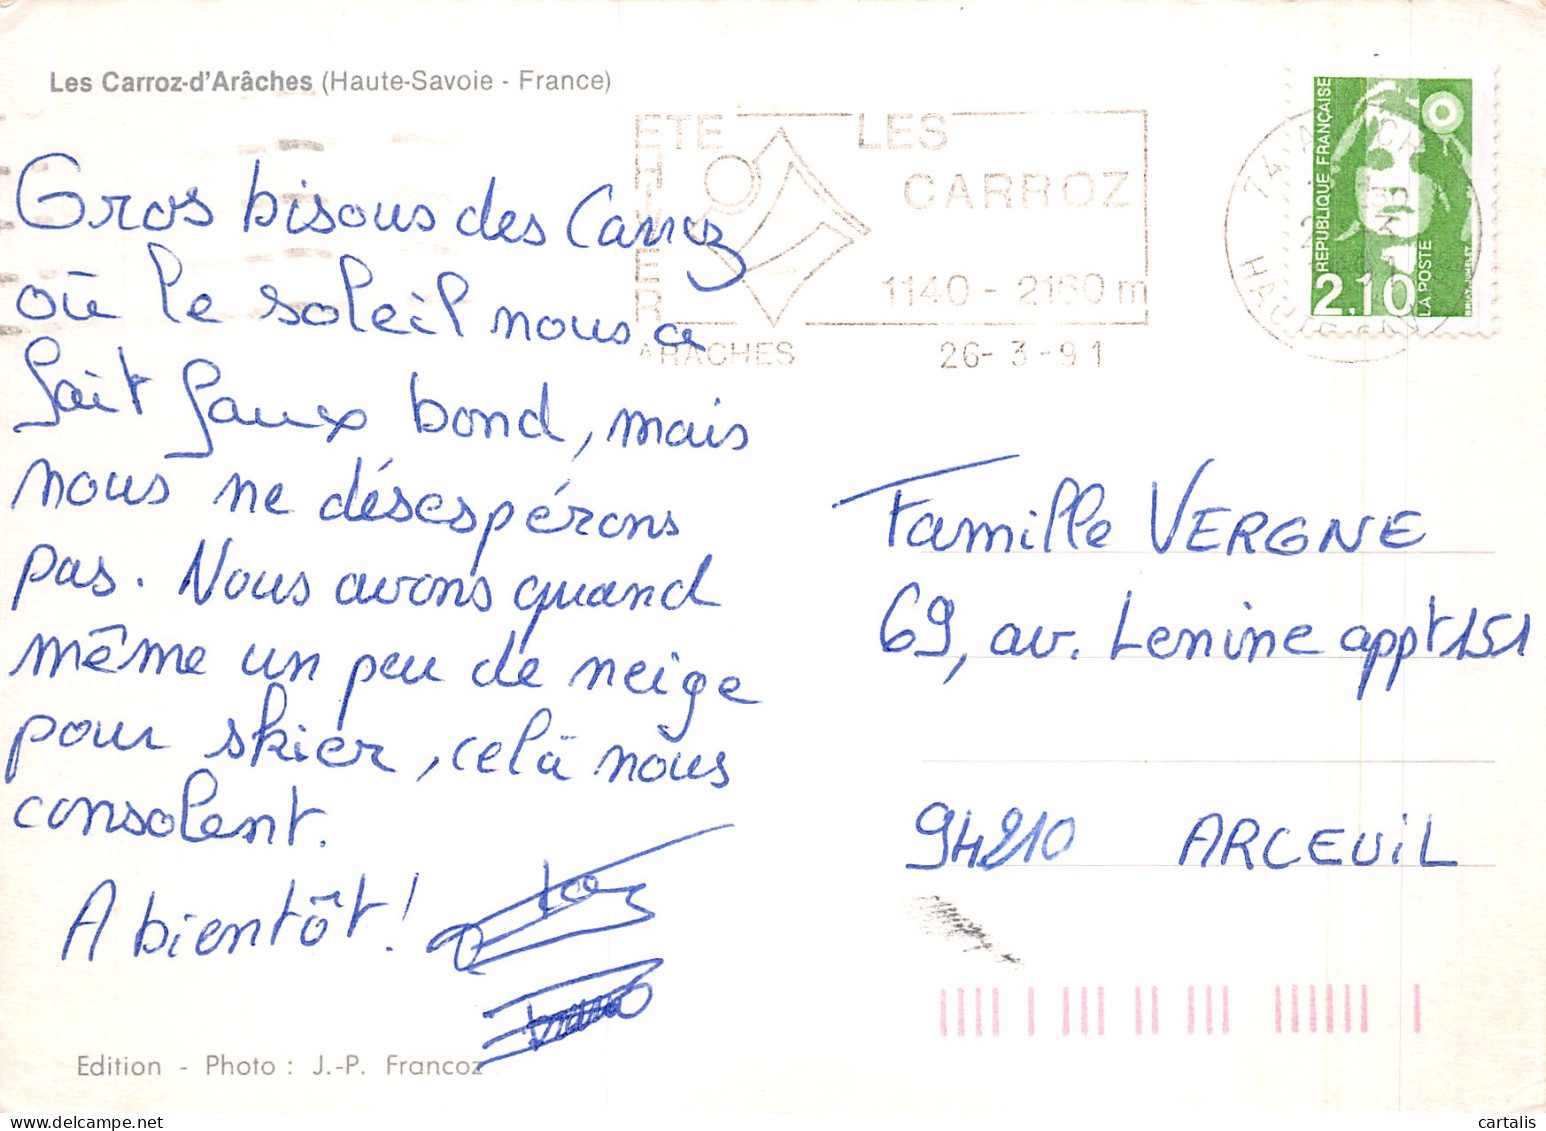 Les Carroz-d'Arâches (Haute-Savoie - France)
ETE
HIVER
LES
CARROZ
1140 - 2160 m
ARACHES
26-3-91
REPUBLIQUE FRANÇAISE
2,10
LA POSTE
Gros bisous des Carroz
où le soleil nous a
fait faux bond, mais
nous ne désespérons
pas. Nous avons quand
même un peu de neige
pour skier, celà nous
consolent.
A bientôt!
Famille VERGNE
69, av. Lenine appt 151
94210 ARCEUIL
Edition - Photo : J.-P. Francoz
cartalis